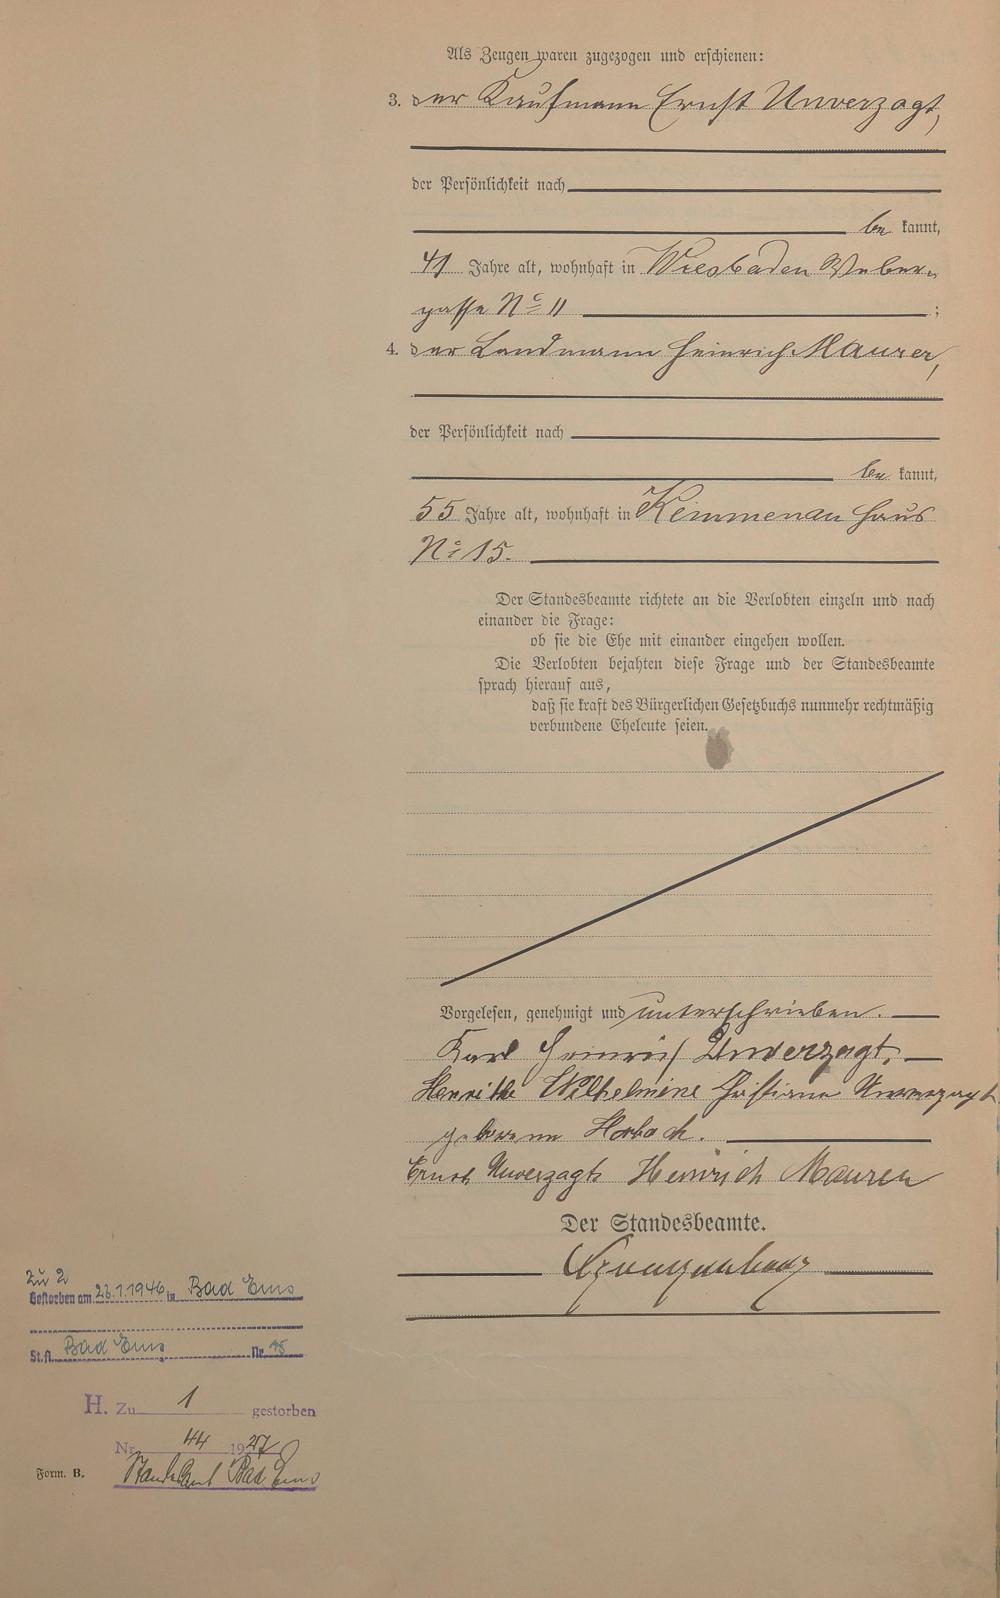 Als Zeugen waren zugezogen und erschienen:
3. der Kaufmann Ernst Unverzagt,
der Persönlichkeit nach
be kannt,
41 Jahre alt, wohnhaft in Wiesbaden Weber-
gasse No 11 ;
4. der Landmann Heinrich Maurer,
der Persönlichkeit nach
be kannt,
55 Jahre alt, wohnhaft in Kemmenau Haus
No 15.
Der Standesbeamte richtete an die Verlobten einzeln und nach
einander die Frage:
ob sie die Ehe mit einander eingehen wollen.
Die Verlobten bejahten diese Frage und der Standesbeamte
sprach hierauf aus,
daß sie kraft des Bürgerlichen Gesetzbuchs nunmehr rechtmäßig
verbundene Eheleute seien.
Vorgelesen, genehmigt und unterschrieben.
Karl Heinrich Unverzagt.
Wilhelmine Christiane Unverzagt
geborene Horbach.
Ernst Unverzagt Heinrich Maurer
Der Standesbeamte.
Zu 2
Gestorben am 23.1.1946 in Bad Ems
St.A. Bad Ems Nr. 15
H. Zu 1 gestorben
Nr. 44 1927
Standesamt Bad Ems
Form. B.